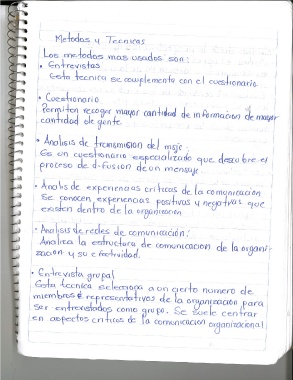 Metodos y Tecnicas
Los metodos mas usados son:
• Entrevistas
Esta tecnica se complementa con el cuestionario
• Cuestionario
Permiten recoger mayor cantidad de informacion de mayor
cantidad de gente
• Analisis de transmision del msje:
Es un cuestionario especializado que descubre el
proceso de difusion de un mensaje
• Analis de experiencias criticas de la comunicación
Se conocen experiencias positivas y negativas que
existen dentro de la organizacion
• Analisis de redes de comunicación:
Analica la estructura de comunicacion de la organi-
zacion y su efectividad.
• Entrevista grupal
Esta tecnica selecciona a un cierto numero de
miembros representativos de la organizacion para
ser entrevistados como grupo. Se suele centrar
en aspectos criticos de la comunicacion organizacional